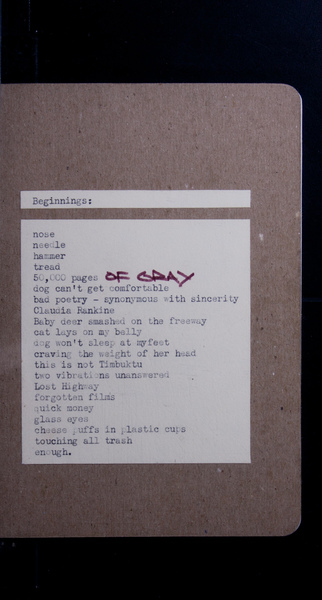 Beginnings:
nose
needle
hammer
tread
50,000 pages OF GRAY
dog can't get comfortable
bad poetry - synonymous with sincerity
Claudia Rankine
Baby deer smashed on the freeway
cat lays on my belly
dog won't sleep at myfeet
craving the weight of her head
this is not Timbuktu
two vibrations unanswered
Lost Highway
forgotten films
quick money
glass eyes
cheese puffs in plastic cups
touching all trash
enough.